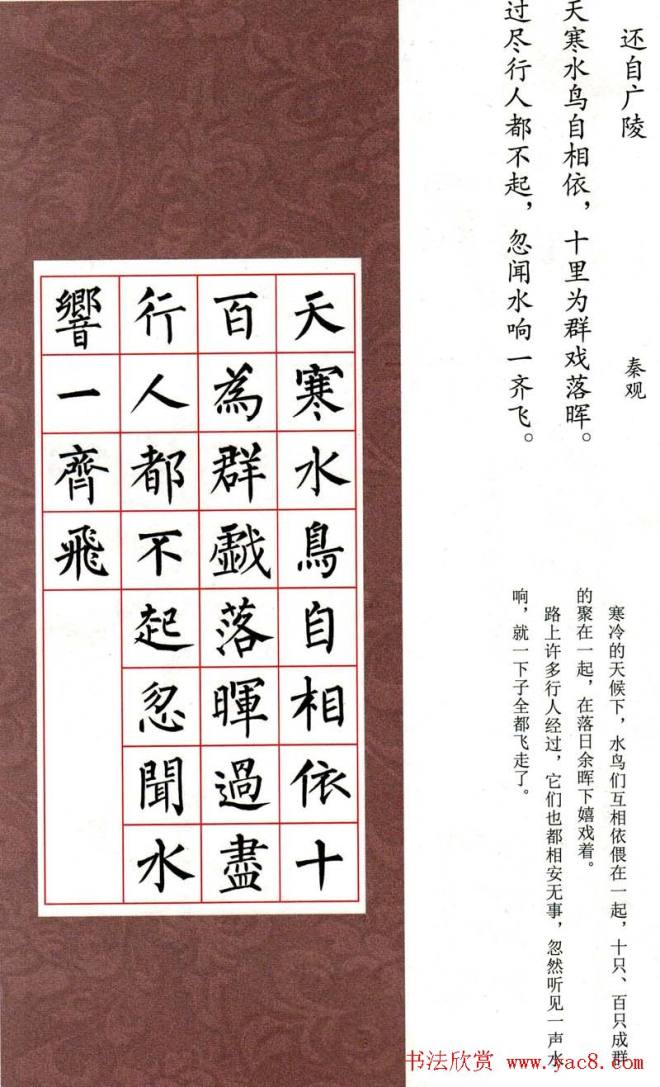 还自广陵
秦观
天寒水鸟自相依，十里为群戏落晖。
过尽行人都不起，忽闻水响一齐飞。
寒冷的天候下，水鸟们互相依偎在一起，十只、百只成群
的聚在一起，在落日余晖下嬉戏着。
路上许多行人经过，它们也都相安无事，忽然听见一声水
响，就一下子全都飞走了。
天寒水鳥自相依十
百為群戲落暉過盡
行人都不起忽聞水
響一齊飛
书法欣赏 www.yac8.com